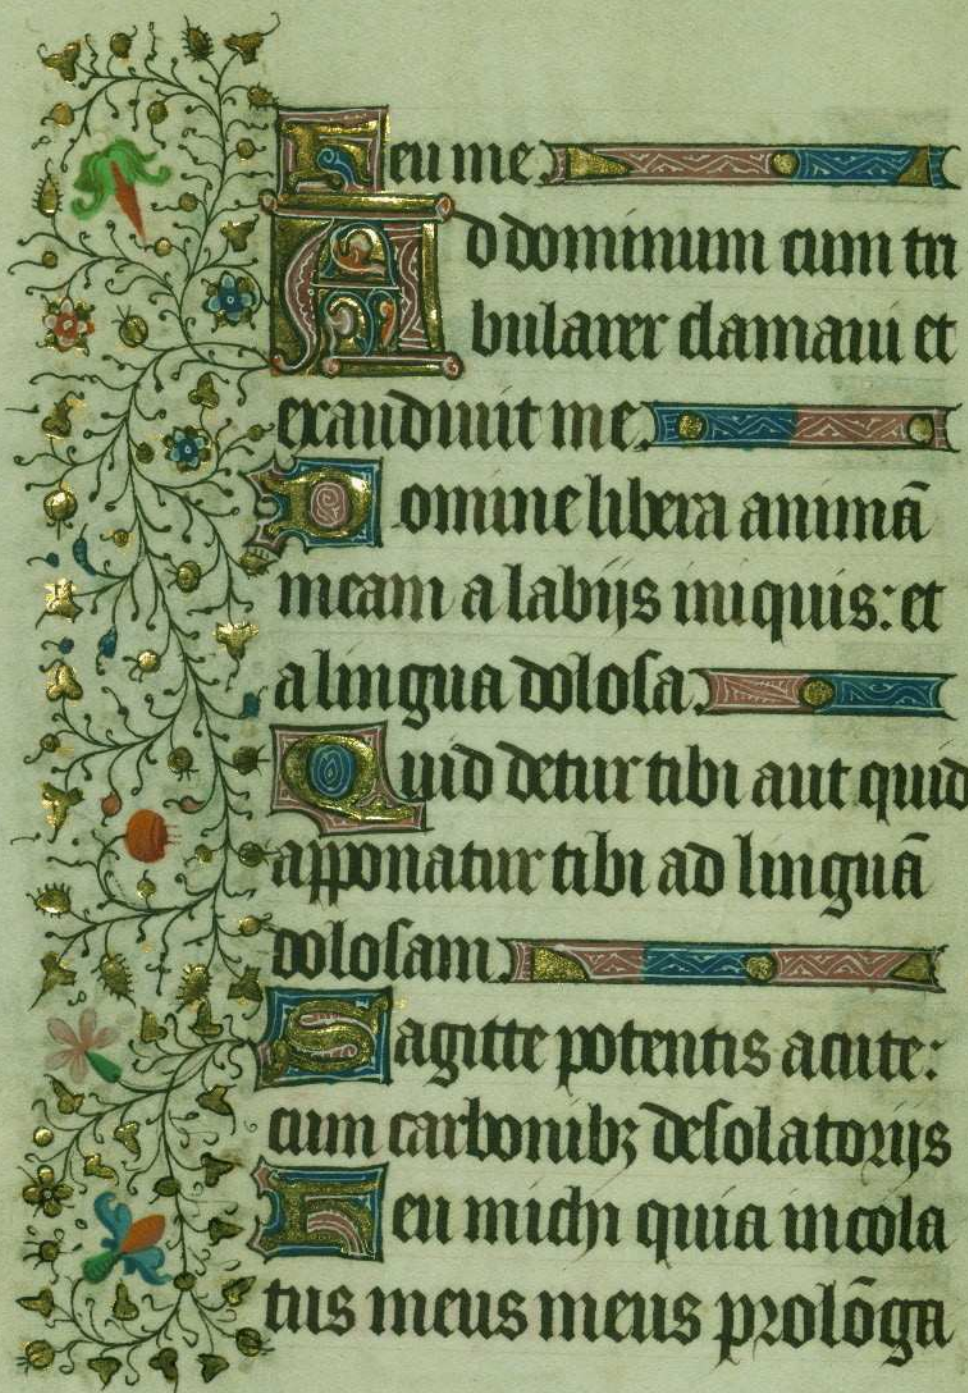 Heu me.
Ad dominum cum tri
bularer clamaui et
exaudiuit me.
Domine libera animā
meam a labijs iniquis: et
a lingua doloſa.
Quid detur tibi aut quid
apponatur tibi ad linguā
doloſam.
Sagitte potentis acute:
cum carbonibꝫ deſolatorijs
Heu michi quia incola
tus meus meus prolōga